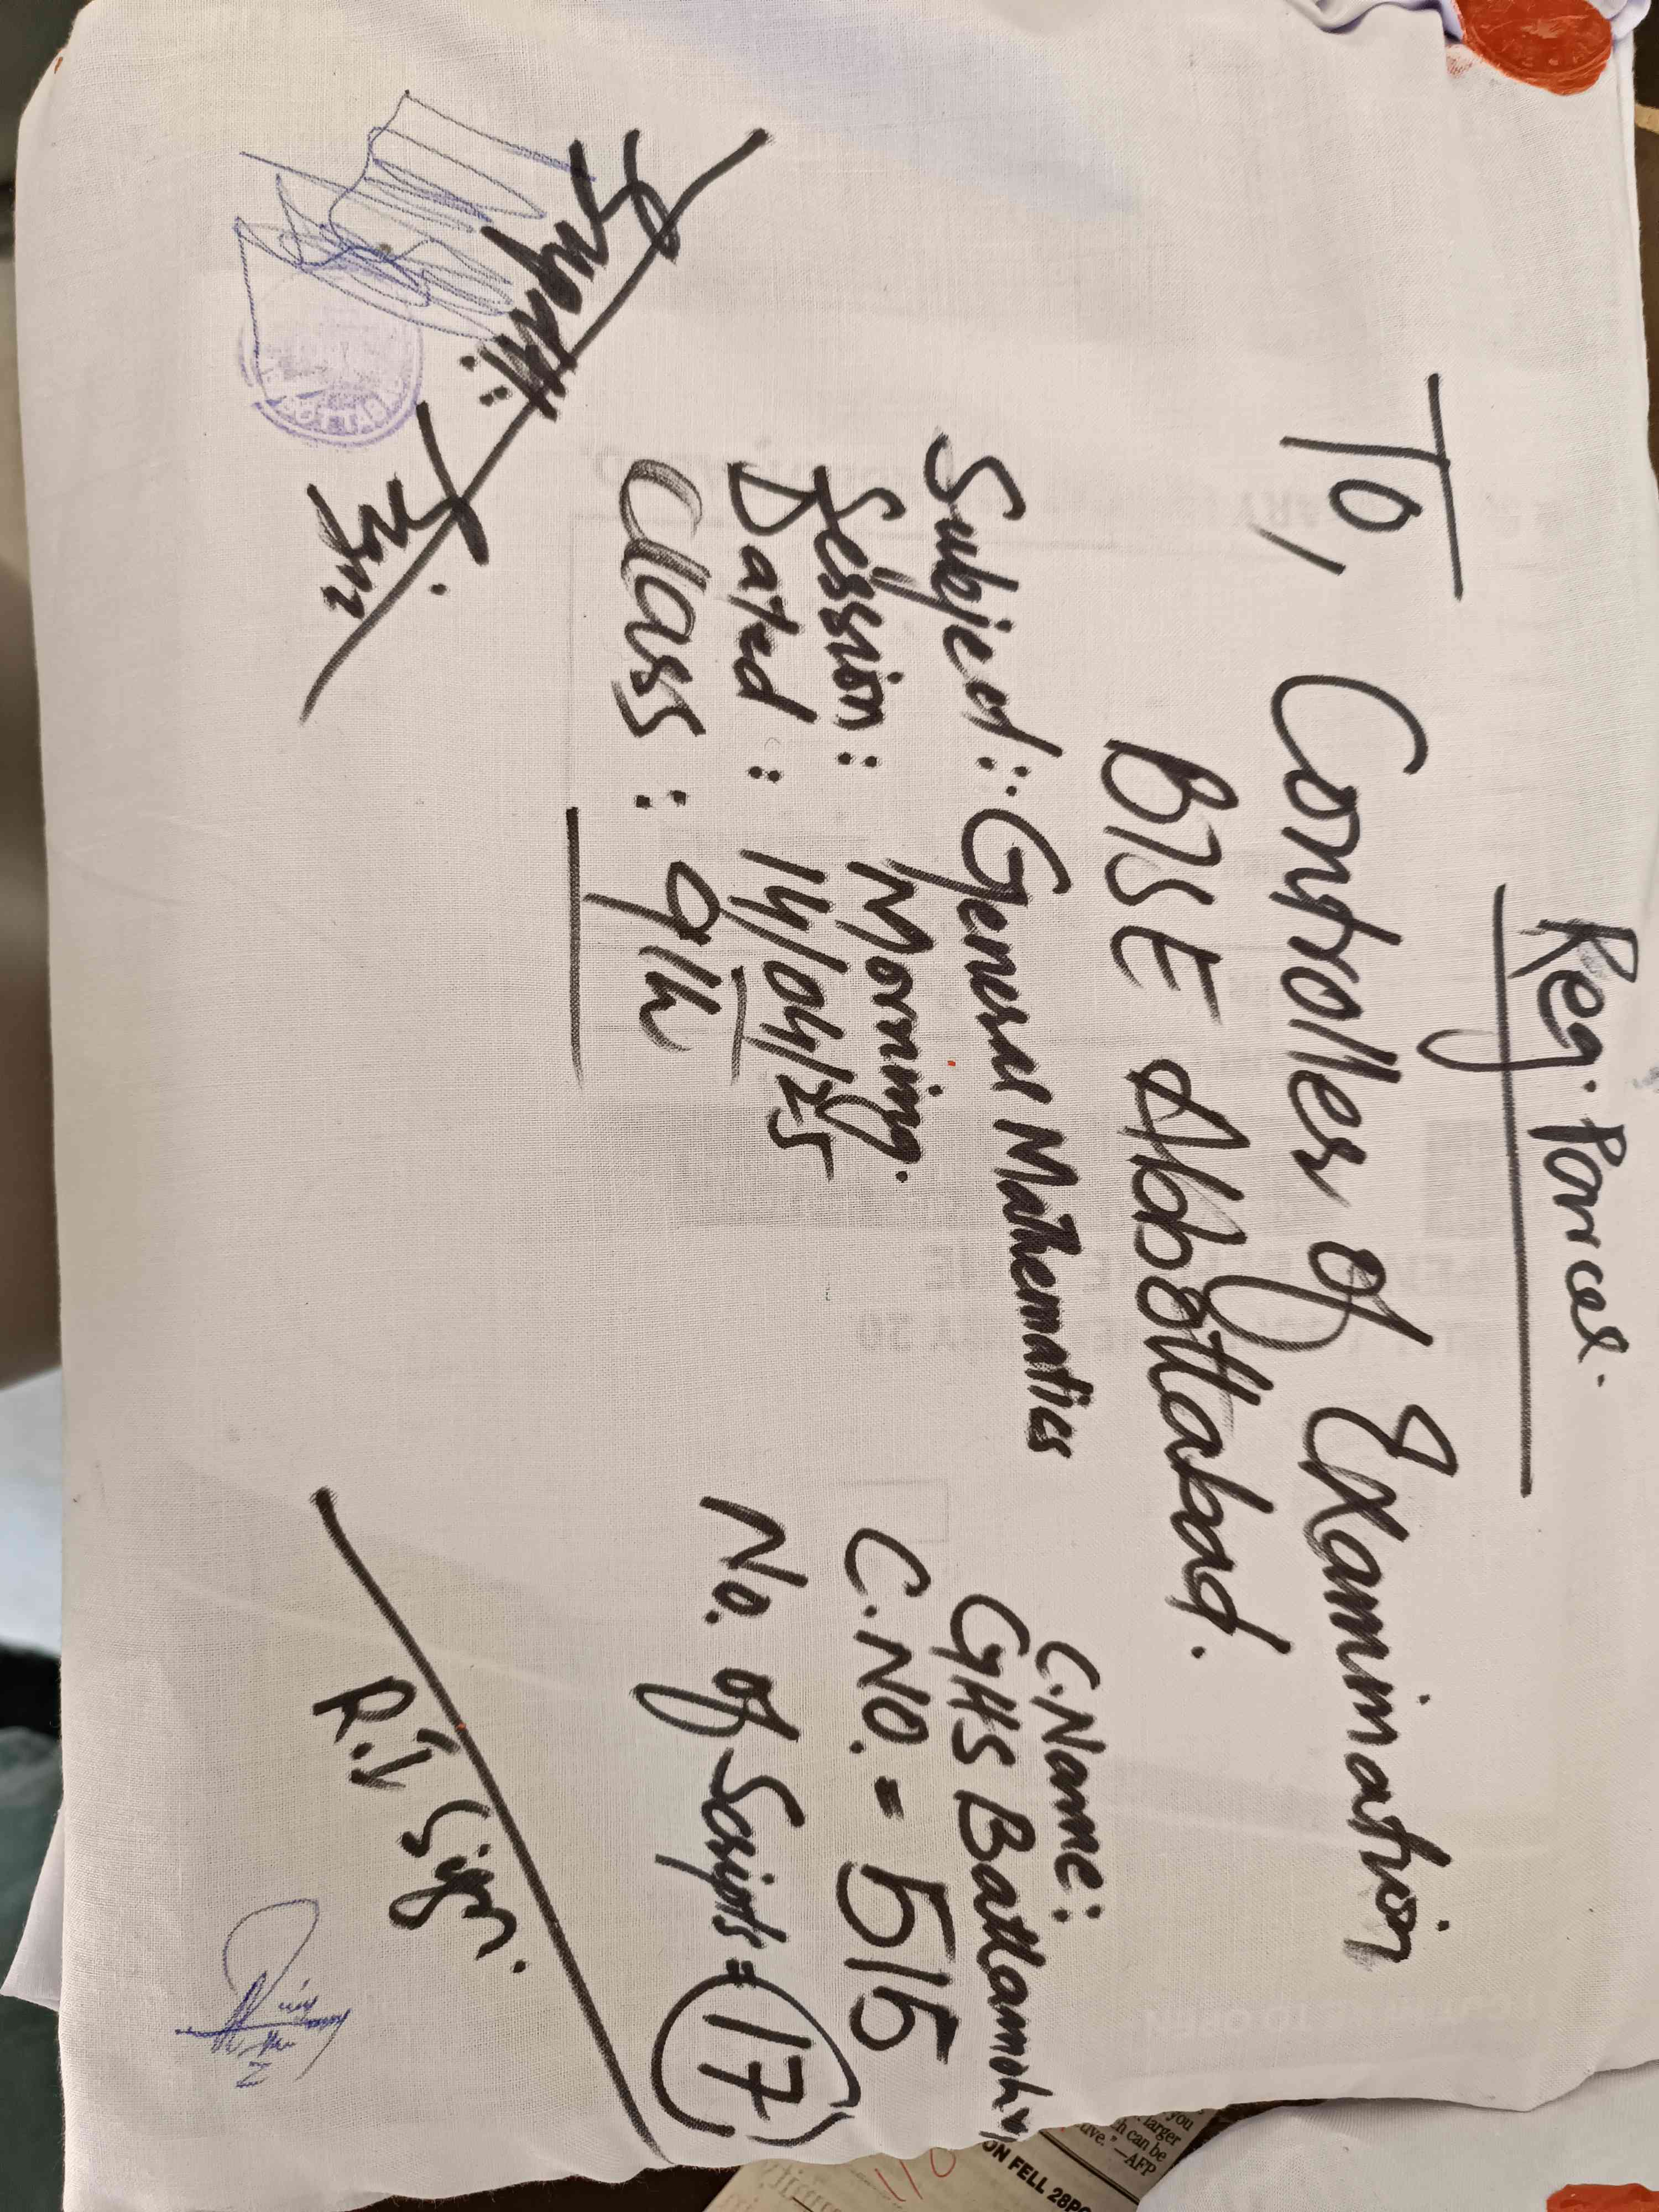 Reg. Parcel.
To,
Controller of Examination
BISE Abbottabad.
C.Name:
Subject:: General Mathematics
GHS Battamori
Session: Morning.
C.NO. = 515
Dated: 14/04/25
No. of Scripts = 17
Class: 9th
Supdtt:
Sign
R.I Sign.
ON FELL 28PO
you
larger
ch can be
ive."—AFP
110
TO OPEN